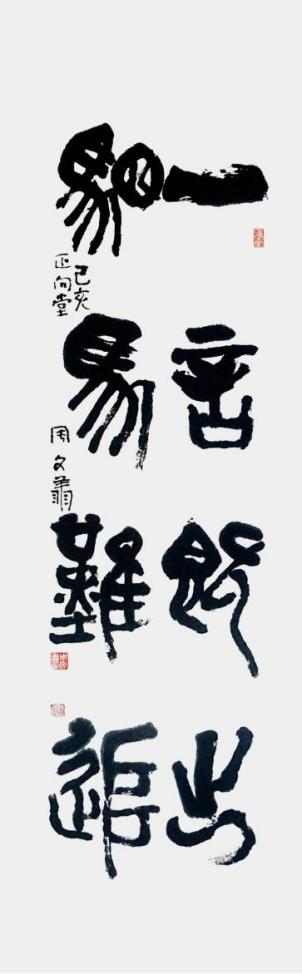 一言既出
駟馬難追
己亥
正向堂
周文